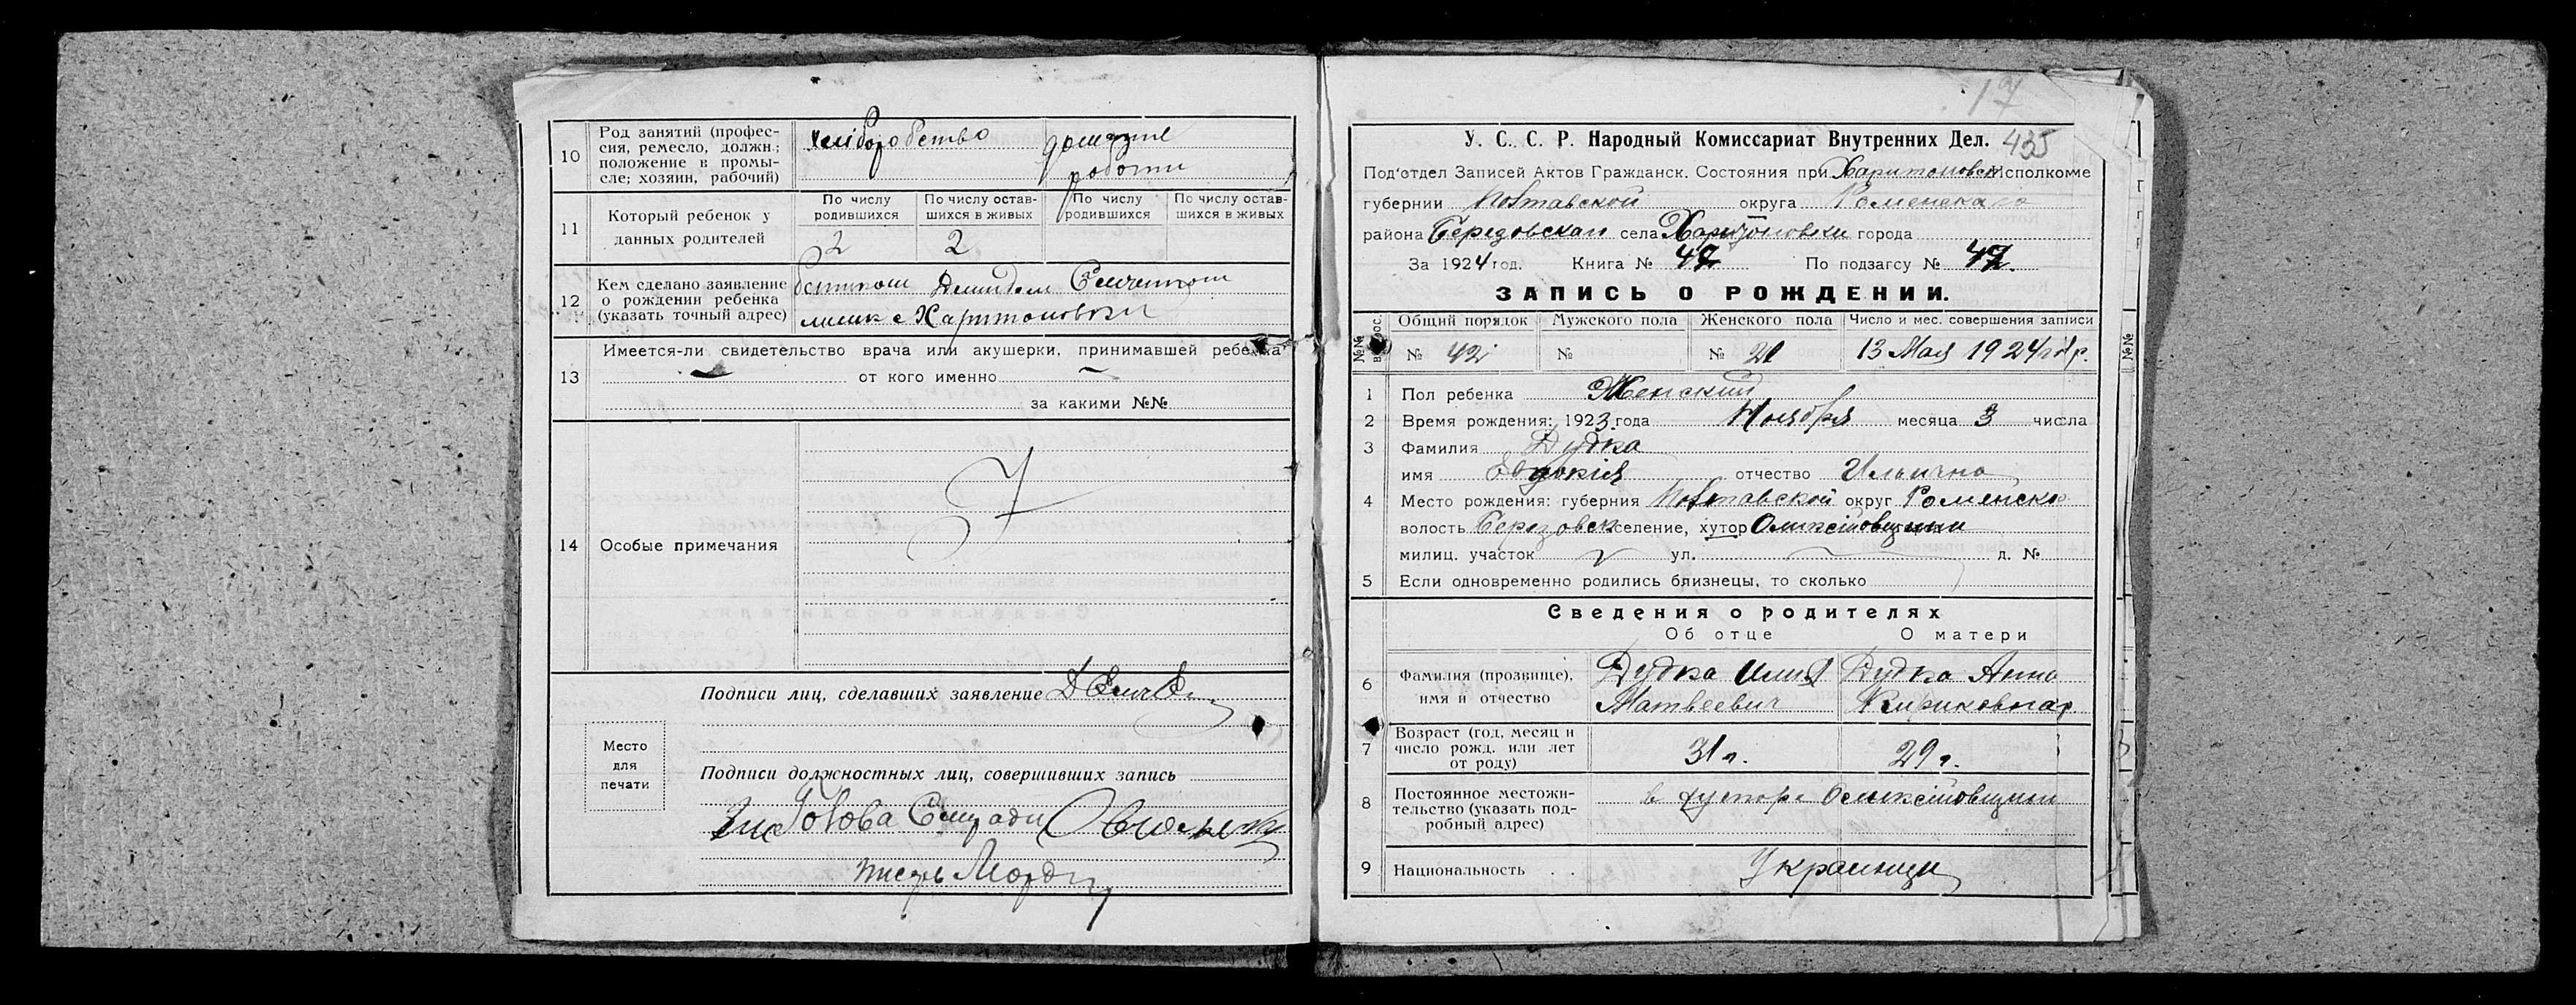 10
Род занятий (профес-
сия, ремесло, должн.;
положение в промы-
сле; хозяин, рабочий)
хлiборобство
домашне
работи
11
Который ребенок у
данных родителей
По числу
родившихся
По числу остав-
шихся в живых
По числу
родившихся
По числу остав-
шихся в живых
2
2
12
Кем сделано заявление
о рождении ребенка
(указать точный адрес)
батьком Демидом Семченком
с Харитоновки
13
Имеется-ли свидетельство врача или акушерки, принимавшей ребенка
от кого именно
за какими №№
14
Особые примечания
Подписи лиц, сделавших заявление
Место
для
печати
Подписи должностных лиц, совершивших запись
Голова Сельради
писарь
17
435
У. С. С. Р. Народный Комиссариат Внутренних Дел.
Под'отдел Записей Актов Гражданск. Состояния при Харитоновск Исполкоме
губернии Полтавской округа Роменскаго
района Березовскаго села Харитоновки города
За 1924 год. Книга № По подзагсу №
ЗАПИСЬ О РОЖДЕНИИ.
№№ вопрос.
Общий порядок
Мужского пола
Женского пола
Число и мес. совершения записи
№ 42
№
№ 21
13 Мая 1924 год р.
1 Пол ребенка Женский
2 Время рождения: 1923 года Ноября месяца 3 числа
3 Фамилия Дудка
имя Евдокiя отчество Ильична
4 Место рождения: губерния Полтавской округ Роменско
волость Березовск селение, хутор Олексiiовщини
милиц. участок ул. д. №
5 Если одновременно родились близнецы, то сколько
Сведения о родителях
Об отце
О матери
6
Фамилия (прозвище),
имя и отчество
Дудка Илия
Матвеевич
Дудка Анна
Кириковная
7
Возраст (год, месяц и
число рожд. или лет
от роду)
31 л.
29 л.
8
Постоянное местожи-
тельство (указать под-
робный адрес)
в хуторе Олексiiовщини
9
Национальность
Украинци
№№